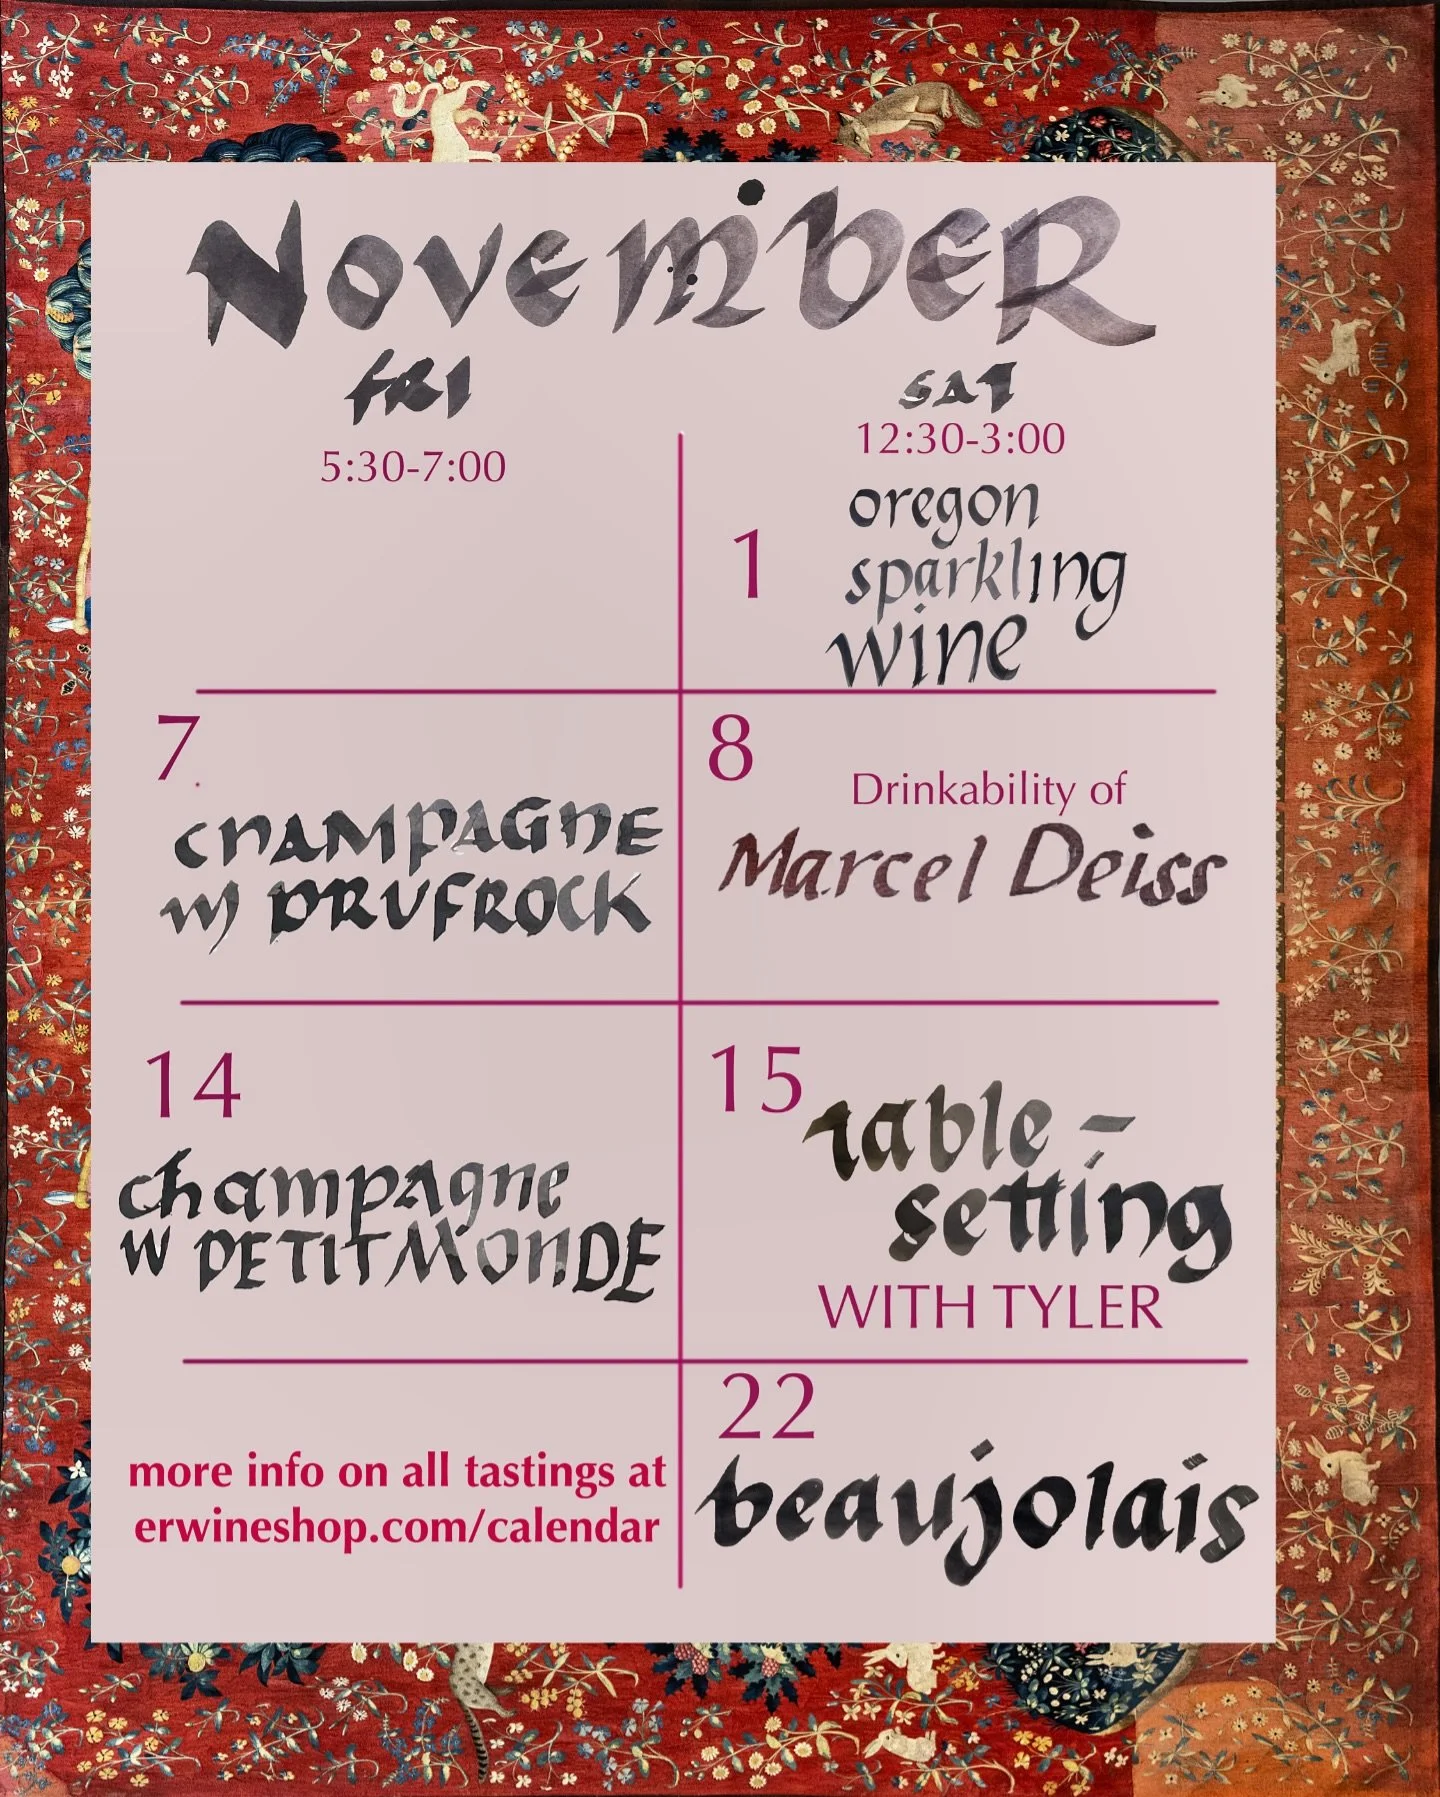 NovembeR
FRI
SAT
5:30-7:00
12:30-3:00
1
oregon
sparkling
wine
7
CHAMPAGNE
w/ PRUFROCK
8
Drinkability of
Marcel Deiss
14
champagne
W PETITMONDE
15
table-
setting
WITH TYLER
more info on all tastings at
erwineshop.com/calendar
22
beaujolais